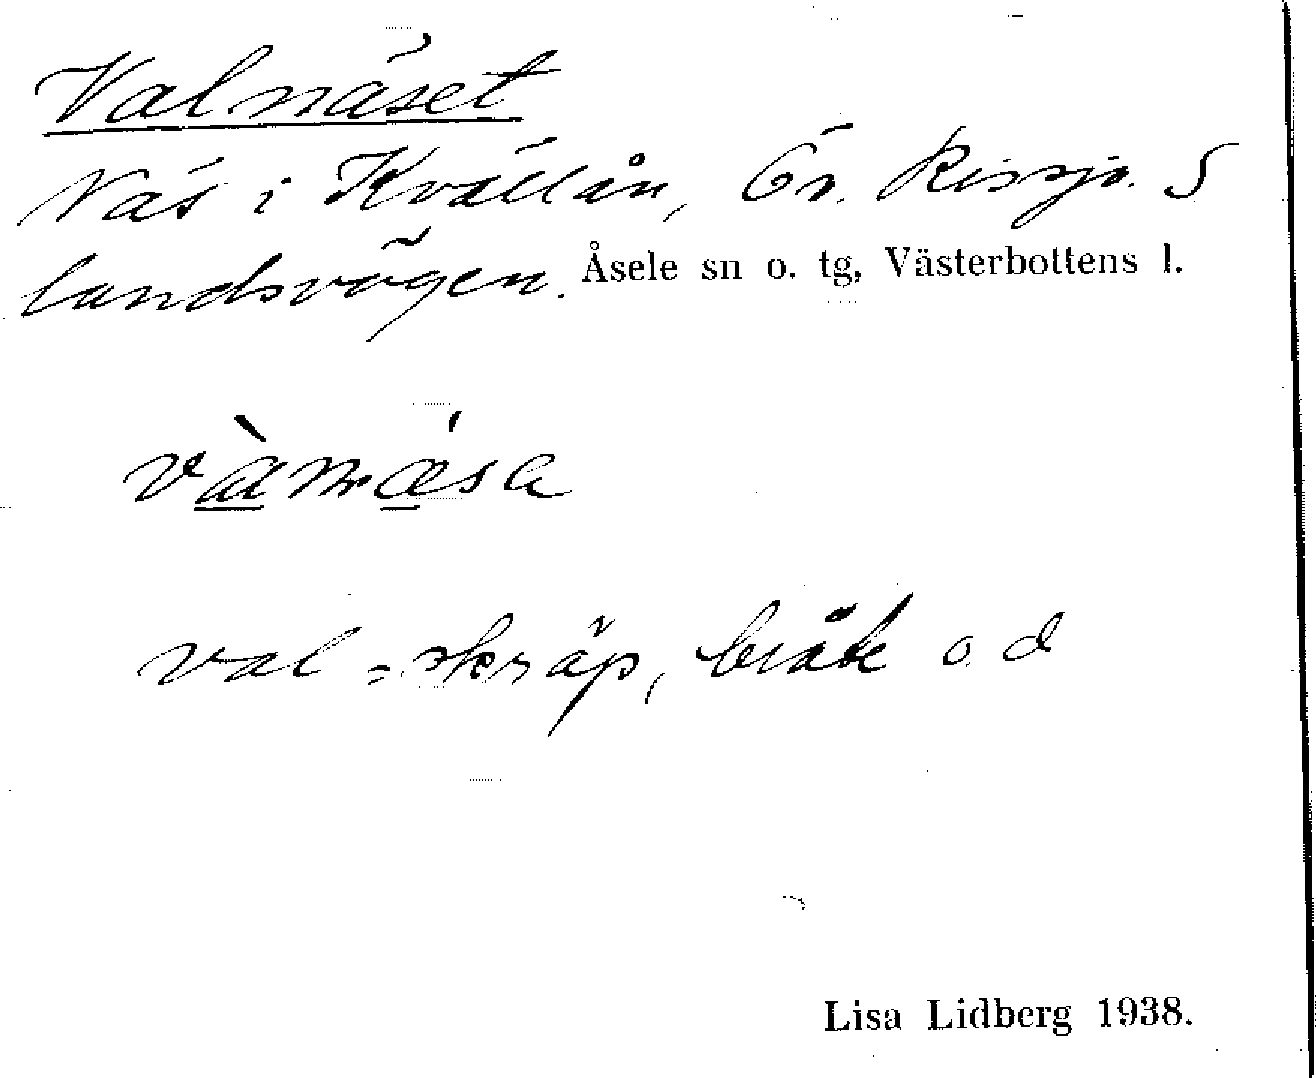 Valnäset
Näs i Kvällån, Ör. Rissjö. S
landsvägen. Åsele sn o. tg, Västerbottens l.
val = skräp, bråte o d
Lisa Lidberg 1938.